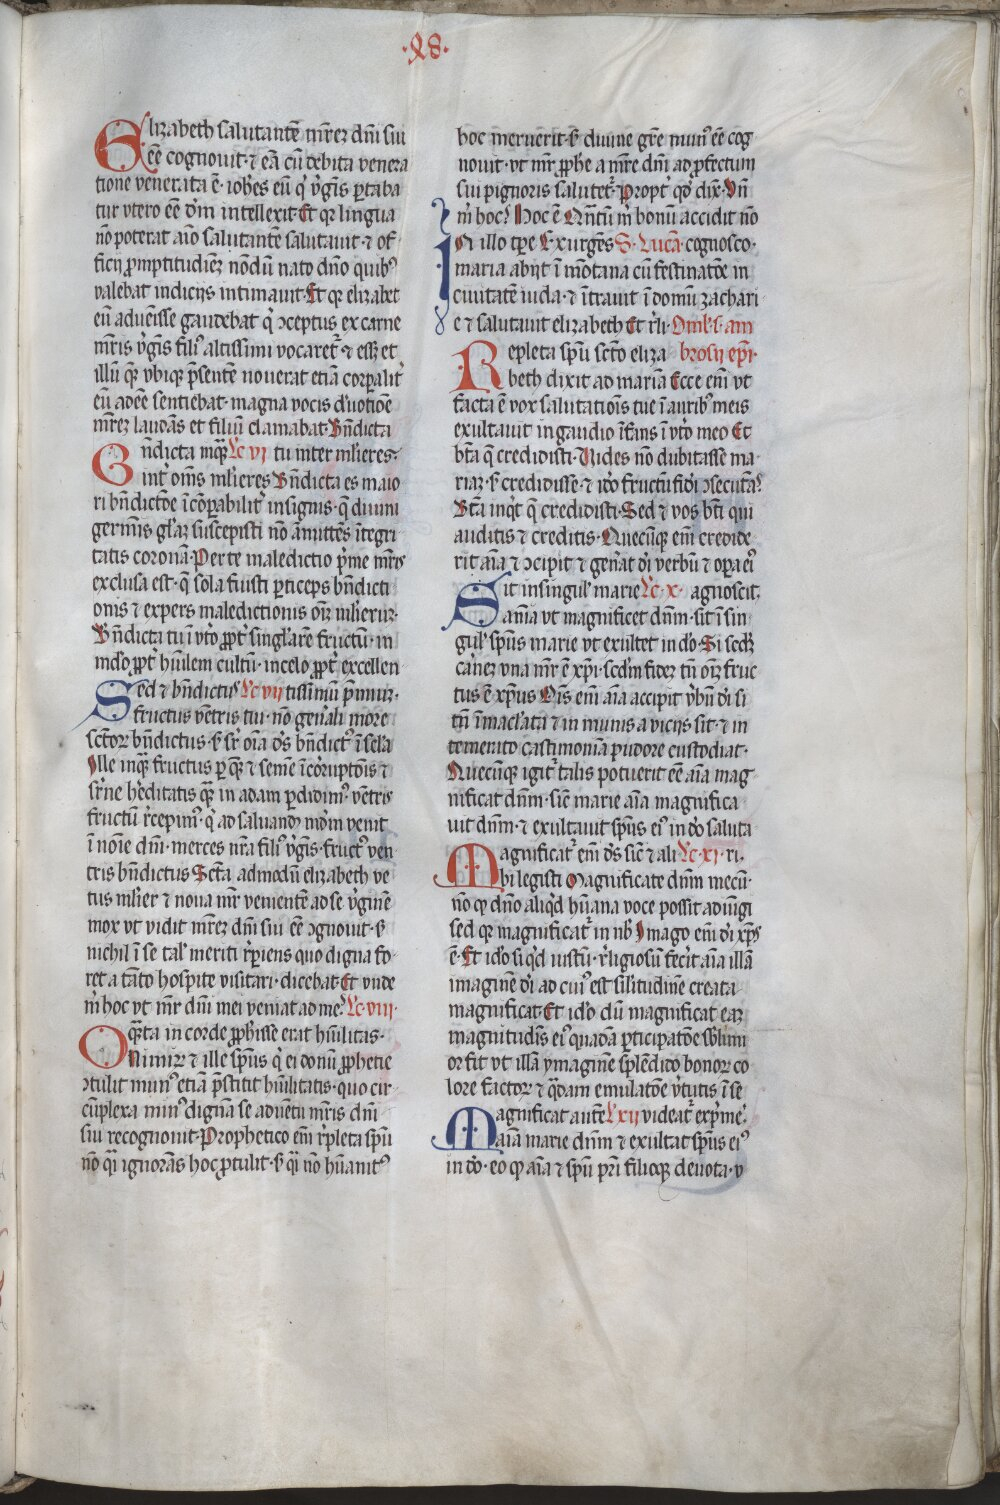 ·X8·
Elizabeth salutantē mr̄eʒ dn̄i sui
eē cognouit· ⁊ eā cū debita venera
tione venerata ē· ioh̄es eū q̄ v̄gīs ꝑtaba
tur vtero eē dn̄m intellexit Et qꝛ lingua
nō poterat aīo salutantē salutauit· ⁊ of
ficij ꝓmptitudīeʒ nōdū nato dn̄o quibꝰ
valebat indicijs intimauit· Et qꝛ elizabet
eū adueīsse gaudebat q̄ ↄceptus ex carne
mr̄is v̄gīs filiꝰ altissimi vocaret᷑· ⁊ essʒ et
illū qꝫ vbiqꝫ p̄sentē nouerat etiā corꝑalit᷑
eū adeē sentiebat· magna vocis d̓uotiōe
mr̄eʒ laudās et filiū clamabat· Bn̄dicta
Bn̄dicta inqꝫ Lc vj tu inter ml̓ieres·
int᷑ om̄s ml̓ieres Bn̄dicta es maio
ri bn̄dictōe īcōꝑabilit᷑ insignis· q̄ diuini
germīs gl̓aʒ suscepisti nō amittēs ītegri
tatis coronā· Per te maledictio p̄me mr̄is
exclusa est· q̄ sola fuisti ꝑticeps bn̄dicti
onis ⁊ expers maledictionis oīʒ ml̓ieruʒ·
Bn̄dicta tu ī vt̓o ꝓpt᷑ singl̓arē fructū· in
mdo ꝓpt᷑ hūilem cultū· in celo ꝓpt᷑ excellen
Sed ⁊ bn̄dictus Lc vij tissimū p̄miuʒ·
fructus vētris tui· nō gen̄ali more
sctōꝝ bn̄dictus· s̄ sr̄ oīa d̓s bn̄dictꝰ ī sel̓a
Ille inqꝫ fructus ꝑ quē ⁊ semē īcōruptōis ⁊
sr̄ne h̓editatis qꝫ in adam ꝑdidimꝰ· vētris
fructū r̄cepimꝰ· q̄ ad saluandū mdm venit
ī noīe dn̄i· merces nr̄a filiꝰ v̄gīs· fructꝰ ven
tris bn̄dictus Scta admodū elizabeth ve
tus ml̓ier ⁊ noua mr̄ venientē ad se v̄ginē
mox vt vidit mr̄eʒ dn̄i sui eē ↄgnouit· s̄
nichil ī se tal̓ meriti r̄ꝑiens quo digna fo
ret a tāto hospite visitari· dicebat· Et vnde
m̄ hoc vt mr̄ dn̄i mei veniat ad me? Lc viij·
O qn̄ta in corde ꝓph̄isse erat hūilitas·
Nimiꝝ ⁊ ille spūs q̄ ei donū ꝓphetie
ↄtulit munꝰ etiā p̄stitit hūilitatis· quo cir
cūplexa minꝰ dignā se aduētu mr̄is dn̄i
sui recognouit· Prophetico em̄ r̄pleta spū
nō qͣ ignorās hoc ꝓtulit· s̄ qͣ nō hūanitꝰ
hoc meruerit· s̄ diuine gr̄e munꝰ eē cog
nouit· vt mr̄ ꝓph̄e a mr̄e dn̄i ad ꝓfectum
sui pignoris salutet᷑· Propt᷑ qd̓ dix̄· Vn̄
m̄ hoc? Hoc ē Qn̄tū m̄ bonū accidit nō
In illo tꝑe Exurgēs S· Lucā· cognosco·
maria abijt ī mōtana cū festinatōe in
ciuitatē iuda· ⁊ ītrauit ī domū zachari
e ⁊ salutauit elizabeth Et rl̓i· Oml̓· s· am
Repleta spū scto eliza brosij epī·
beth dixit ad mariā Ecce em̄ vt
facta ē vox salutatiōis tue ī auribꝰ meis
exultauit in gaudio īfans ī vt̓o meo Et
bt̄a q̄ credidisti· Uides nō dubitasse ma
riaʒ· s̄ credidisse· ⁊ iō fructū fidi ↄsecutā?
Bt̄a inqt᷑ q̄ credidisti· Sed ⁊ vos bt̄i qui
auditis ⁊ creditis· Quecūqꝫ em̄ credide
rit aīa ⁊ ↄcipit ⁊ gen̄at di verbū ⁊ oꝑa eiꝰ
Sit in singul̓ marie Lc· x· agnoscit
aīa vt magnificet dn̄m· sit ī sin
gul̓ spūs marie vt exultet in d̓o· Si scdʒ
carneʒ vna mr̄ ē xp̄i· scdm fideʒ tn̄ oīʒ fruc
tus ē xp̄us Oīs em̄ aīa accipit v̄bū di si
tn̄ īmacl̓ata ⁊ inmunis a vicijs sit· ⁊ in
temerato castimoniā pudore custodiat·
Quecūqꝫ igit᷑ talis potuerit eē aīa mag
nificat dn̄m· sic̄ marie aīa magnifica
uit dn̄m· ⁊ exultauit spūs eiꝰ in d̓o saluta
Magnificat᷑ em̄ d̓s sic̄ ⁊ ali Lc· xi· ri·
bi legisti Magnificate dn̄m mecū·
nō qꝙ dn̄o aliqd̓ hūana voce possit adiūgi
sed qꝛ magnificat᷑ in nb̄ Imago em̄ di xp̄s
ē· Et id̓o si qd̓ iustū· r̄ligiosū fecit aīa illā
imaginē di ad cuiꝰ est sil̓itudinē creata
magnificat· Et id̓o dū magnificat eaʒ
magnitudis eiꝰ quadā ꝑticipatōe sb̄limi
or fit vt illā ymaginē splēdido bonoꝝ co
lore factoꝝ ⁊ qͣdam emulatōe v̄tutis ī se
Magnificat autē Lxij videat᷑ exp̄me
aīam marie dn̄m ⁊ exultat spūs eiꝰ
in d̓o· eo qꝙ aīa ⁊ spū pr̄i filioqꝫ deuota· v